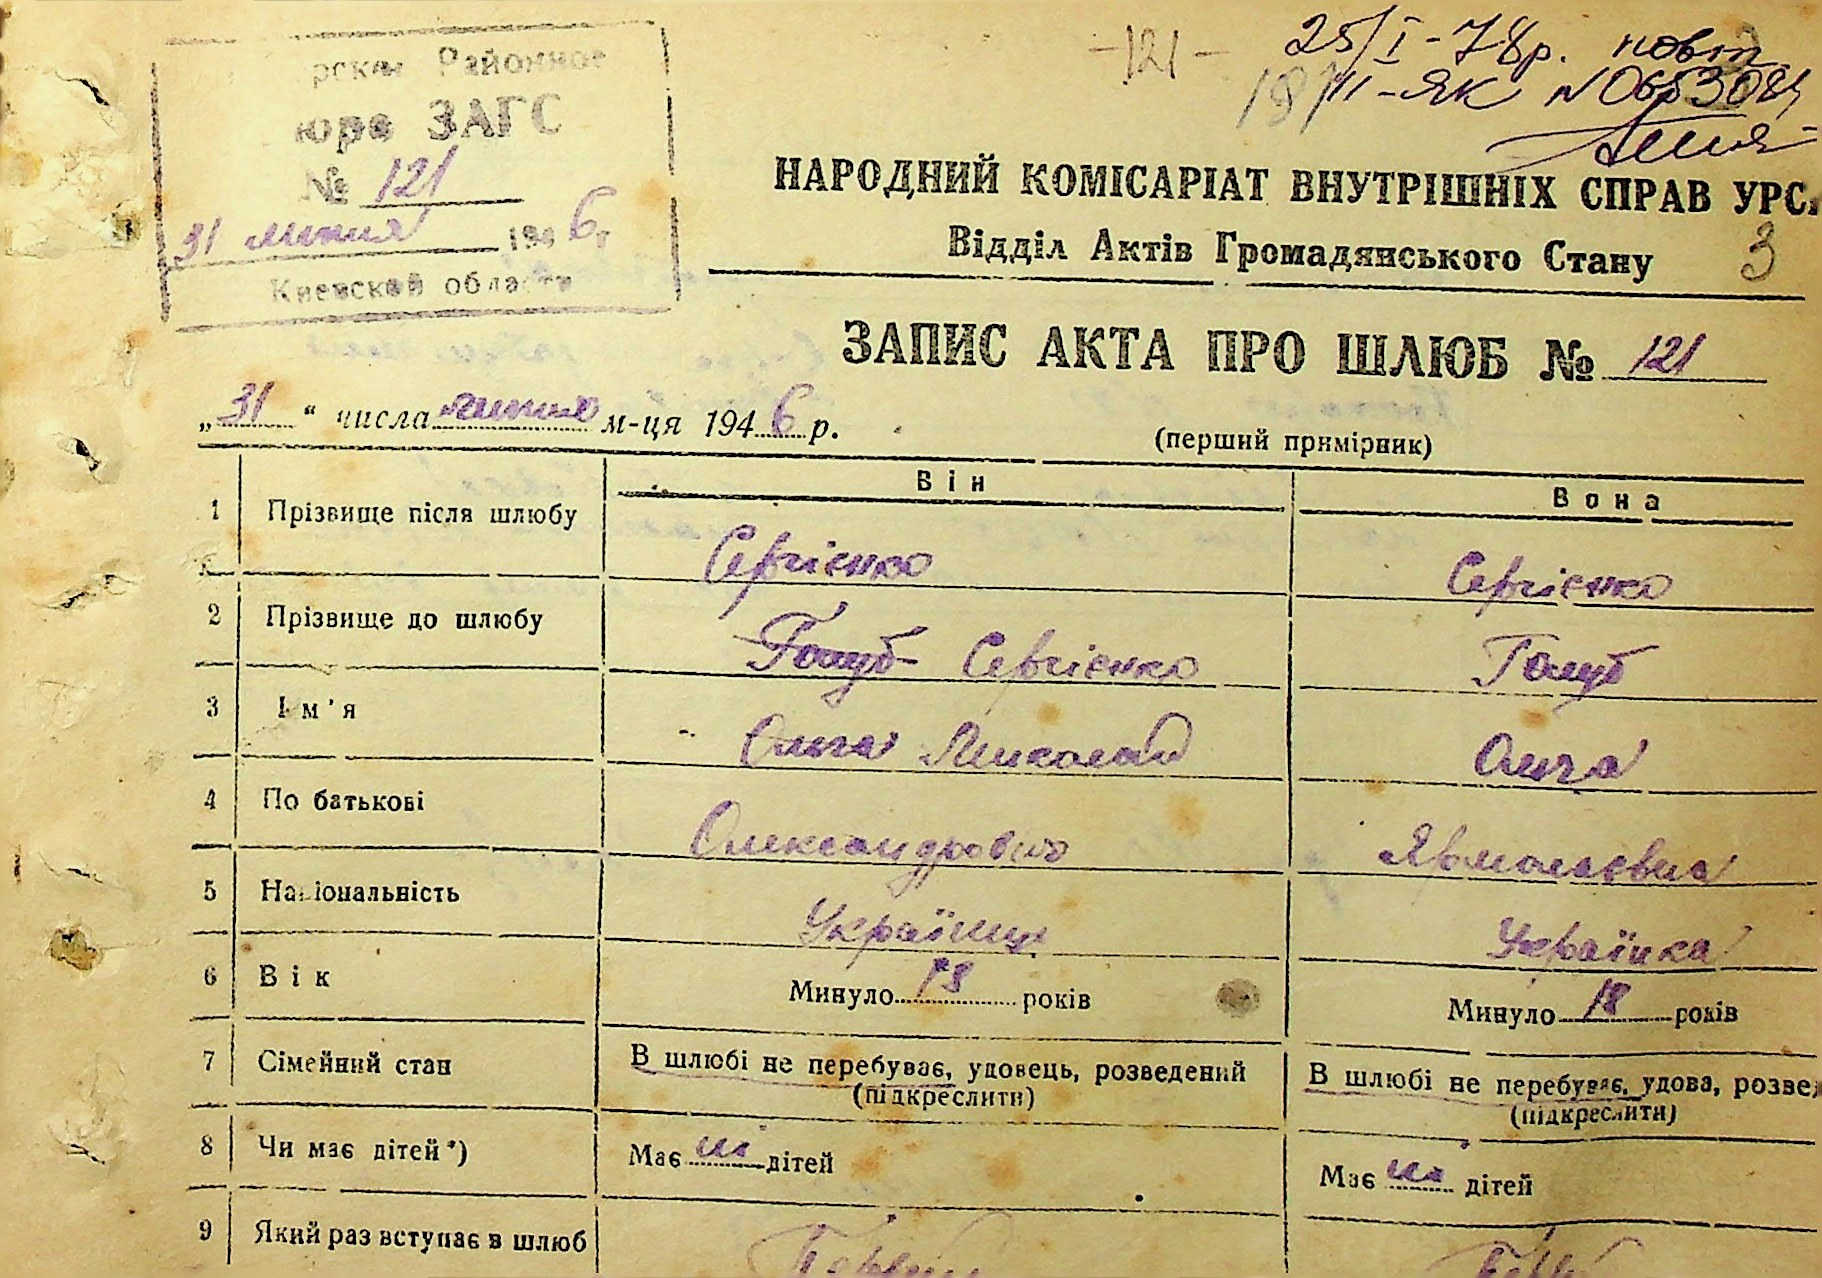 -121- 25/I-78р. повт
181 II-ЯК №
Районное
ЗАГС
№ 121
31 липня 1946 г
Киевской области
НАРОДНИЙ КОМІСАРІАТ ВНУТРІШНІХ СПРАВ УРС
Відділ Актів Громадянського Стану 3
ЗАПИС АКТА ПРО ШЛЮБ № 121
„31“ числа липня м-ця 1946 р.
(перший примірник)
Він Вона
1 Прізвище після шлюбу Сергієнко Сергієнко
2 Прізвище до шлюбу Голуб Сергієнко Голуб
3 Ім'я Ольга Миколай Ольга
4 По батькові Олександрович Ярмолаєвна
5 Національність Українец Українка
6 Вік Минуло 18 років Минуло 18 років
7 Сімейний стан В шлюбі не перебуває, удовець, розведений В шлюбі не перебуває, удова, розве
(підкреслити) (підкреслити)
8 Чи має дітей*) Має ні дітей Має ні дітей
9 Який раз вступає в шлюб